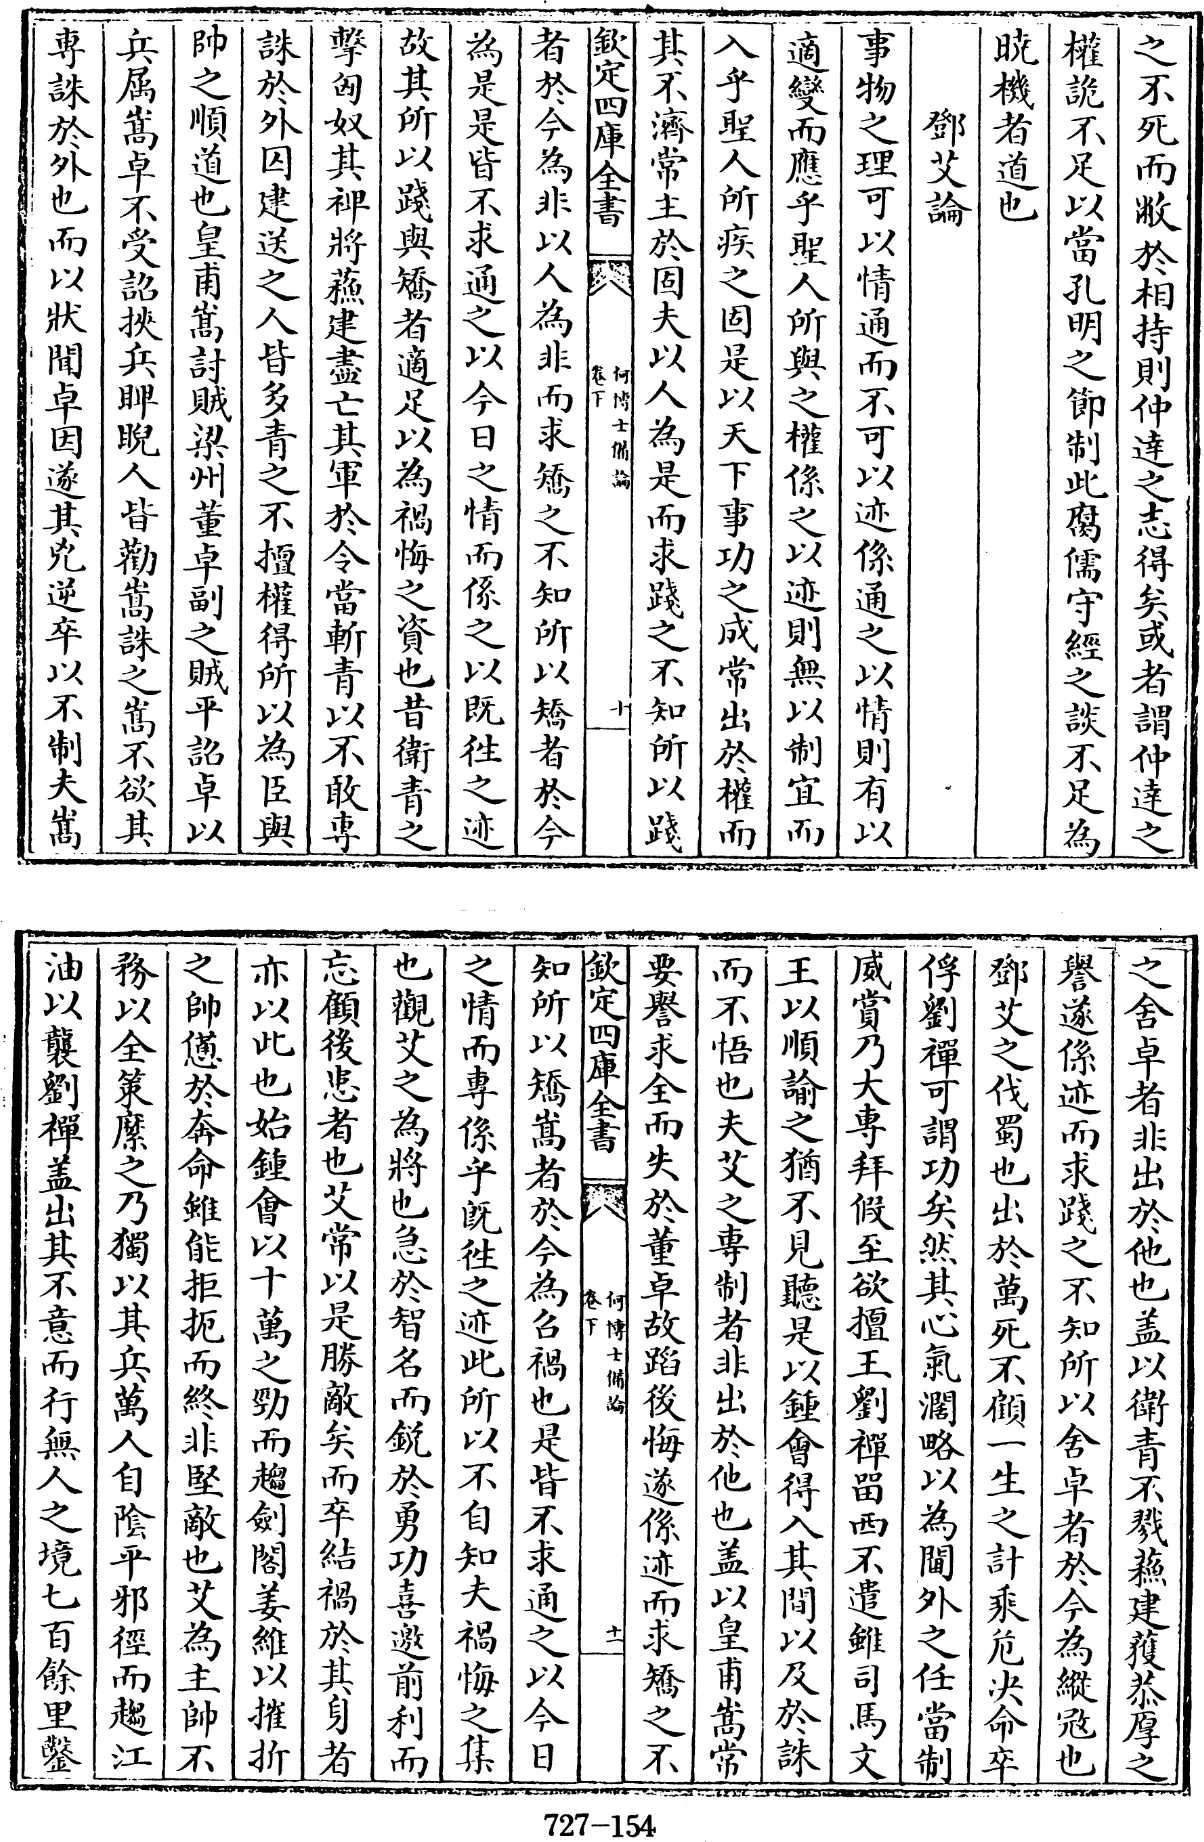 之不死而敝於相持則仲達之志得矣或者謂仲達之
權詭不足以當孔明之節制此腐儒守經之談不足為
曉機者道也
鄧艾論
事物之理可以情通而不可以迹係通之以情則有以
適變而應乎聖人所與之權係之以迹則無以制宜而
入乎聖人所疾之固是以天下事功之成常出於權而
其不濟常主於固夫以人為是而求踐之不知所以踐
欽定四庫全書
何博士備論
卷下
十
者於今為非以人為非而求矯之不知所以矯者於今
為是是皆不求通之以今日之情而係之以既往之迹
故其所以踐與矯者適足以為禍悔之資也昔衛青之
擊匈奴其裨將蘇建盡亡其軍於令當斬青以不敢專
誅於外囚建送之人皆多青之不擅權得所以為臣與
帥之順道也皇甫嵩討賊梁州董卓副之賊平詔卓以
兵屬嵩卓不受詔挾兵睥睨人皆勸嵩誅之嵩不欲其
專誅於外也而以狀聞卓因遂其兇逆卒以不制夫嵩
之舍卓者非出於他也盖以衛青不戮蘇建獲恭厚之
譽遂係迹而求踐之不知所以舍卓者於今為縱寇也
鄧艾之伐蜀也出於萬死不顧一生之計乘危决命卒
俘劉禪可謂功矣然其心氣濶略以為閫外之任當制
威賞乃大專拜假至欲擅王劉禪留西不遣雖司馬文
王以順諭之猶不見聽是以鍾會得入其間以及於誅
而不悟也夫艾之專制者非出於他也盖以皇甫嵩常
要譽求全而失於董卓故蹈後悔遂係迹而求矯之不
欽定四庫全書
何博士備論
卷下
十一
知所以矯嵩者於今為召禍也是皆不求通之以今日
之情而專係乎既往之迹此所以不自知夫禍悔之集
也觀艾之為將也急於智名而銳於勇功喜邀前利而
忘顧後患者也艾常以是勝敵矣而卒結禍於其身者
亦以此也始鍾會以十萬之勁而趨劍閣姜維以摧折
之帥憊於奔命雖能拒扼而終非堅敵也艾為主帥不
務以全策縻之乃獨以其兵萬人自陰平邪徑而趨江
油以襲劉禪盖出其不意而行無人之境七百餘里鑿
727-154